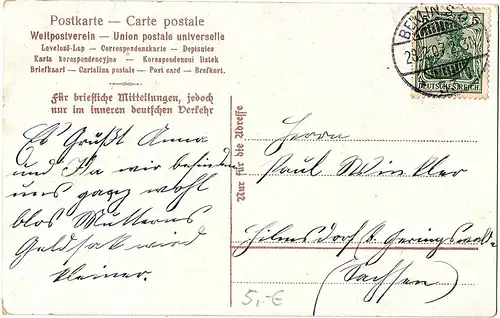 Postkarte — Carte postale
Weltpostverein — Union postale universelle
Levelező-Lap — Correspondenzkarte — Dopisnice
Karta korespondencyjna — Korespondencni listek
Briefkaart — Cartolina postale — Post card — Brefkort.
Für briefliche Mitteilungen, jedoch
nur im inneren deutschen Verkehr
Nur für die Adresse
BERLIN S.
DEUTSCHES REICH
Es Grüßt Anna
und Ida wir befinden
uns ganz wohl
blos Mutterns
Geldsak wird
kleiner.
Herrn
Paul Winkler
Hilmsdorf b. Geringswalde
(Sachsen)
5,-€